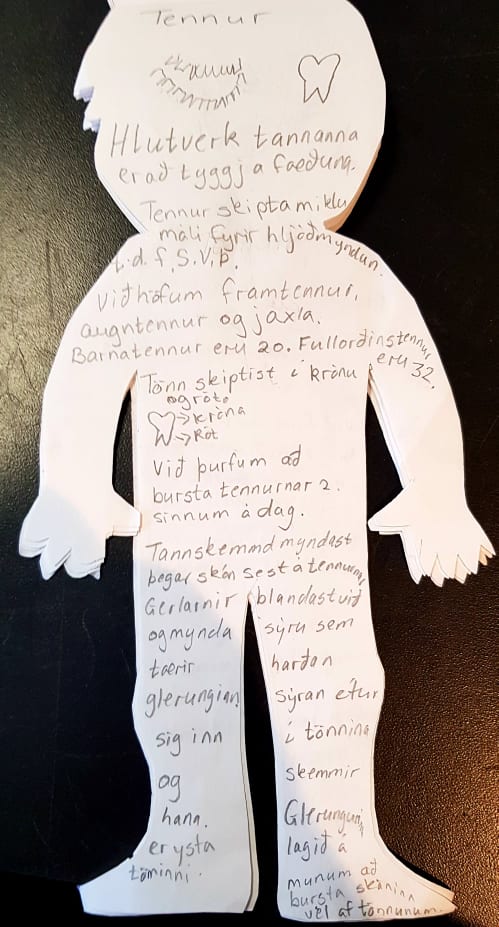 Tennur
Hlutverk tannanna
er að tyggja fæðuna.
Tennur skipta miklu
máli fyrir hljóðmyndun.
t.d. f, S, V, þ.
Við höfum framtennur,
augntennur og jaxla.
Barnatennur eru 20. Fullorðinstennur
eru 32.
Tönn skiptist í krónu
og rót.
→ króna
→ Rót
Við þurfum að
bursta tennurnar 2.
sinnum á dag.
Tannskemmd myndast
þegar skán sest á tennurnar
Gerlarnir blandast við
og mynda sýru sem
tærir harðan
glerunginn sýran étur
sig inn í tönnina
og skemmir
hana. Glerungurinn
er ysta lagið á
töninni. munum að
bursta skáninn
vel af tönnunum.